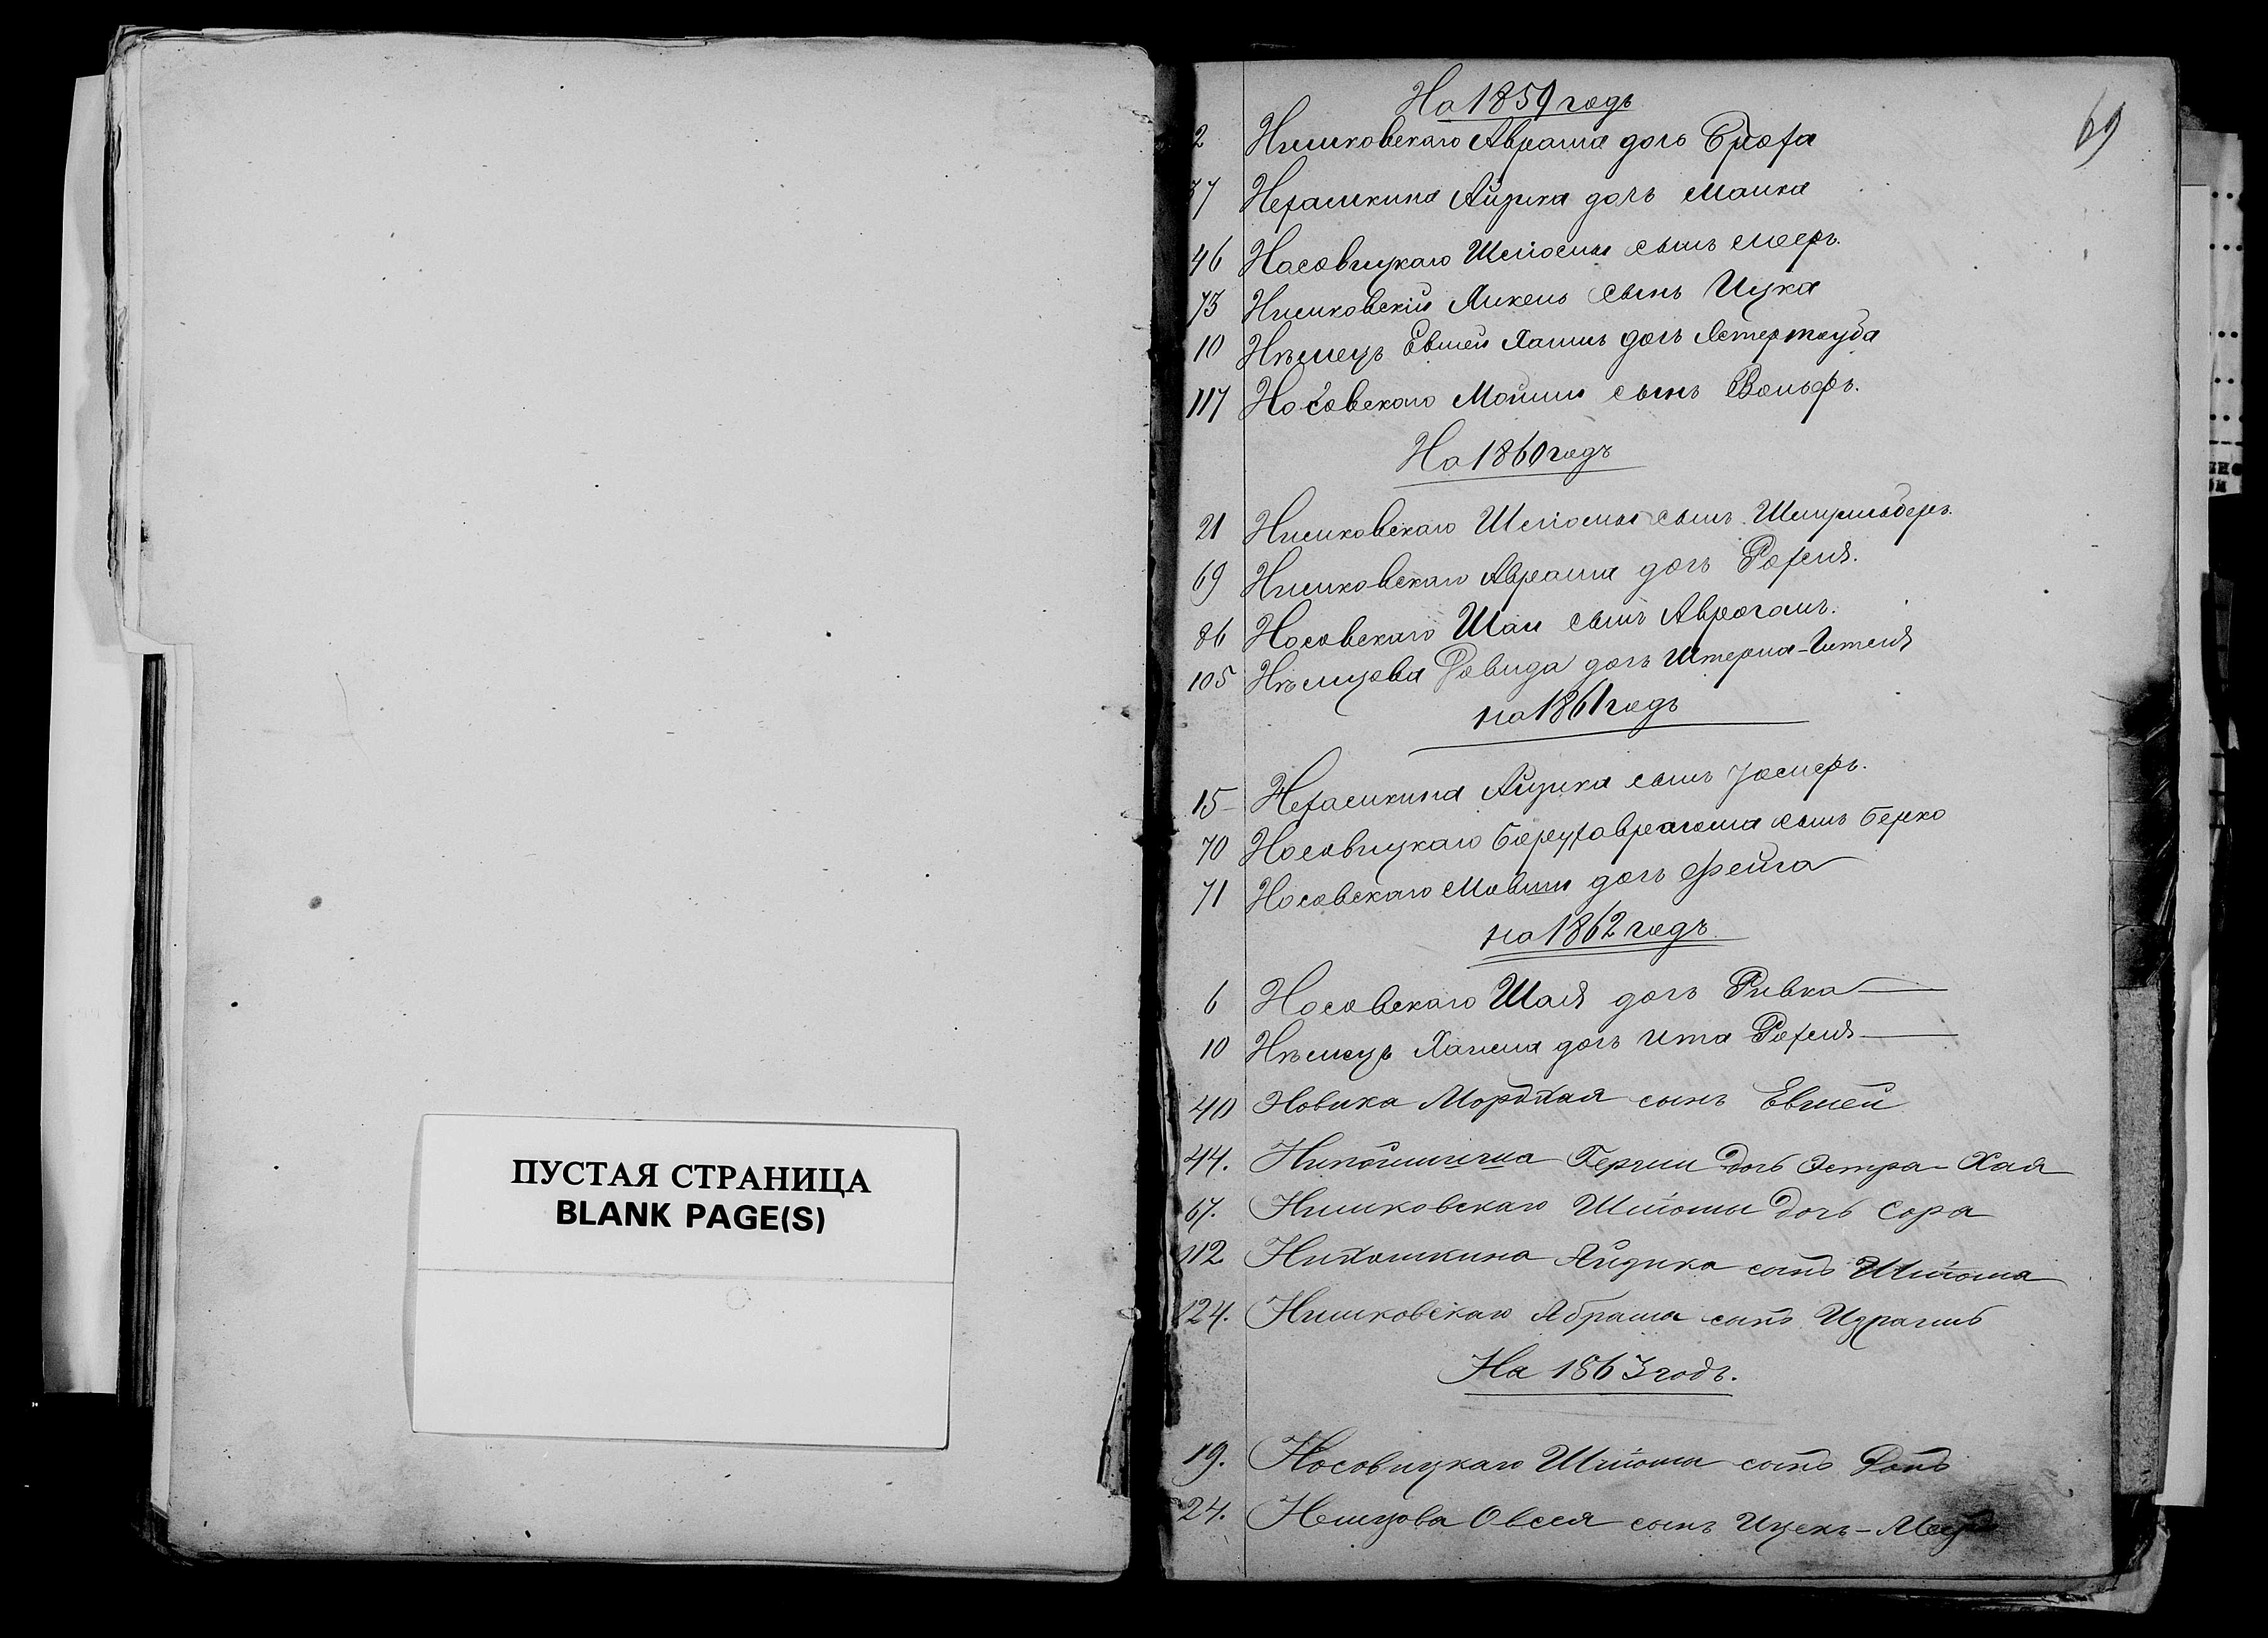 ПУСТАЯ СТРАНИЦА
BLANK PAGE(S)
69
На 1859 годъ
2 Нишковскаго Аврама дочь
37 Нехамкина Айзика дочь Малка
46 Насовицкаго Шліомы сынъ Мееръ.
73 Нишковскій Янкель сынъ Ицка
10 Нѣмецъ Евшей Хаимъ дочь
117 Носовскаго Мовши сынъ Вольфъ.
На 1860 годъ
21 Нишковскаго Шліомы сынъ
69 Нишковскаго Аврама дочь Рохля.
86 Носовскаго Шаи сынъ Аврогамъ.
105 Нѣмцова дочь Штерна-Гитля
на 1861 годъ
15 Нехамкина Айзика сынъ
70 Носовицкаго сынъ Берко
71 Носовскаго Мовши дочь Фейга
на 1862 годъ
6 Носовскаго Шая дочь Ривка
10 Нѣмецъ Хаима дочь Ита Рохля
40 Новика Мордхая сынъ Евшей
44. дочь Эстра-Хая
67. Нишковскаго Шліомы дочь Сора
112. Нихамкина Айзика сынъ Шліома
124. Нишковскаго Абрама сынъ Израиль
На 1863 годъ.
19. Носовицкаго Шліома сынъ
24. Немцова Овсея сынъ Ицекъ-